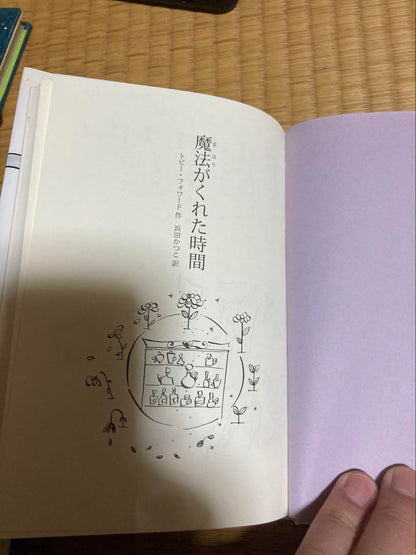 魔法がくれた時間
まほう
トビー・フォワード 作 浜田かつこ 訳